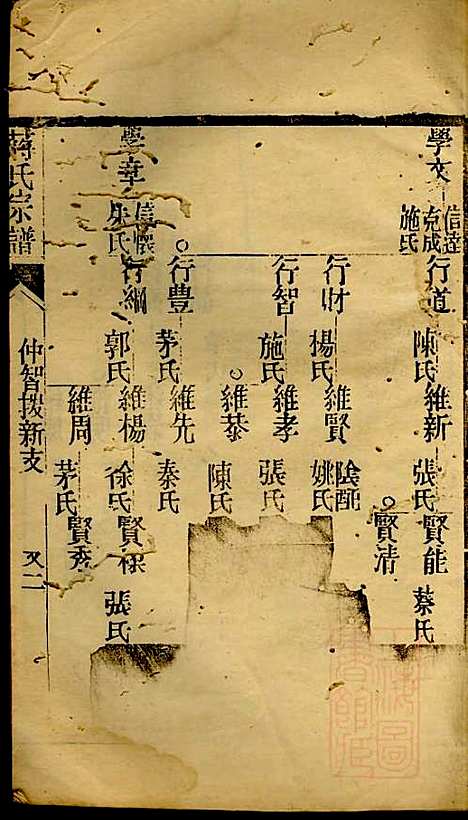 學文
信達
克成
施氏
行道
陳氏
維新
張氏
賢能
蔡氏
賢清
行財
楊氏
維賢
姚氏
陰配
行智
施氏
維孝
張氏
維恭
陳氏
行豐
茅氏
維先
秦氏
學章
信懷
朱氏
行綱
郭氏
維楊
徐氏
張氏
維周
茅氏
賢秀
蔣氏宗譜
仲智援新支